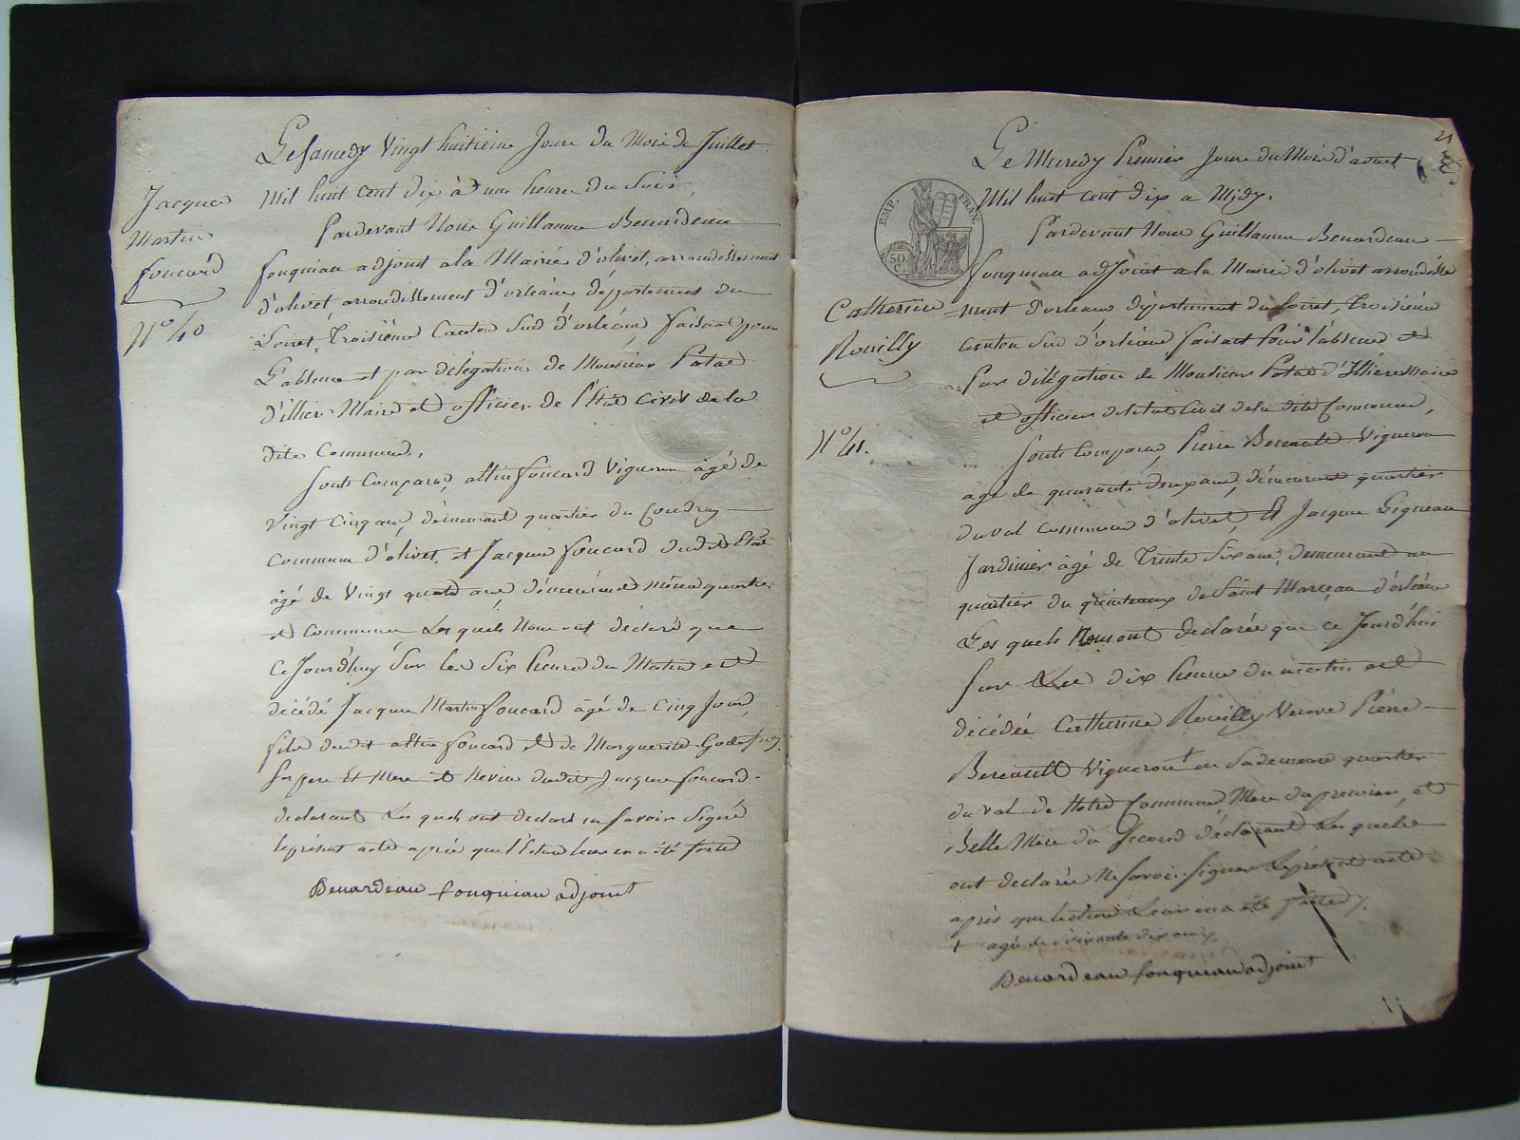 Le samedy Vingt huitiéme Jour du Mois de Juillet
Mil huit cent dix à une heure du Soir,
Pardevant Nous Guillaume Benardeau
fouqueau adjoint a la Mairie d'olivet, arrondissement
d'olivet, arrondissement d'orléans département du
Loiret, Troisiéme Canton Sud d'orléans, faisant pour
L'absence et par délégation de Monsieur Patas
d'illiers Maire et officier de l'état Civil de la
dite Commune,
Jacques
Martin
foucard
N° 40
Sont Comparus, foucard Vigneron âgé de
Vingt Cinq ans, démeurant quartier du Coudray
Commune d'olivet, et Jacques foucard dudit Etat
âgé de Vingt quatre ans démeurant même quartier
et Commune Lesquels Nous ont déclaré que
Ce Jourd'huy Sur les Six heures du Matin est
décédé Jacques Martin foucard âgé de Cinq Jours,
fils dudit foucard et de Marguerite Godefroy
Ses pere Et Mere et Neveu dudit Jacques foucard
declarant Lesquels ont declaré ne Savoir Signé
le présent acte après que lecture leur en a été faite
Benardeau fouqueau adjoint
Le Mercredy Premier Jour du Mois d'aout
Mil huit cent dix a Midy.
EMP. FRAN.
50 C.
Pardevant Nous Guillaume Benardeau
fouqueau adjoint a la Mairie d'olivet arrondisse
ment d'orléans département du Loiret, troisiéme
Canton Sud d'orléans faisant Pour l'absence et
Par délégation de Monsieur Patas d'Illiers Maire
et officier de l'état Civil de la dite Commune,
Catherine
Rouilly
N° 41.
Sont Comparus, Pierre Vigneron
agé de quarante deux ans, démeurant quartier
du val commune d'olivet, Et Jacques Gigneau
Jardinier âgé de Trente Six ans, demeurant au
quartier du de Saint Marceau d'orléans
Les quels Nous ont declarée que ce Jourd'hui
Sur Les dix heures du matin est
décédée Catherine Rouilly Veuve Pierre
Vigneron en Sa demeure quartier
du val de Notre Commune Mere du premier, et
Belle Mere du Second déclarant Lesquels
ont declarée Ne Savoir Signer Le présent acte
après que lecture Leur en a été faitte
agé de dix ans
Benardeau fouqueau adjoint